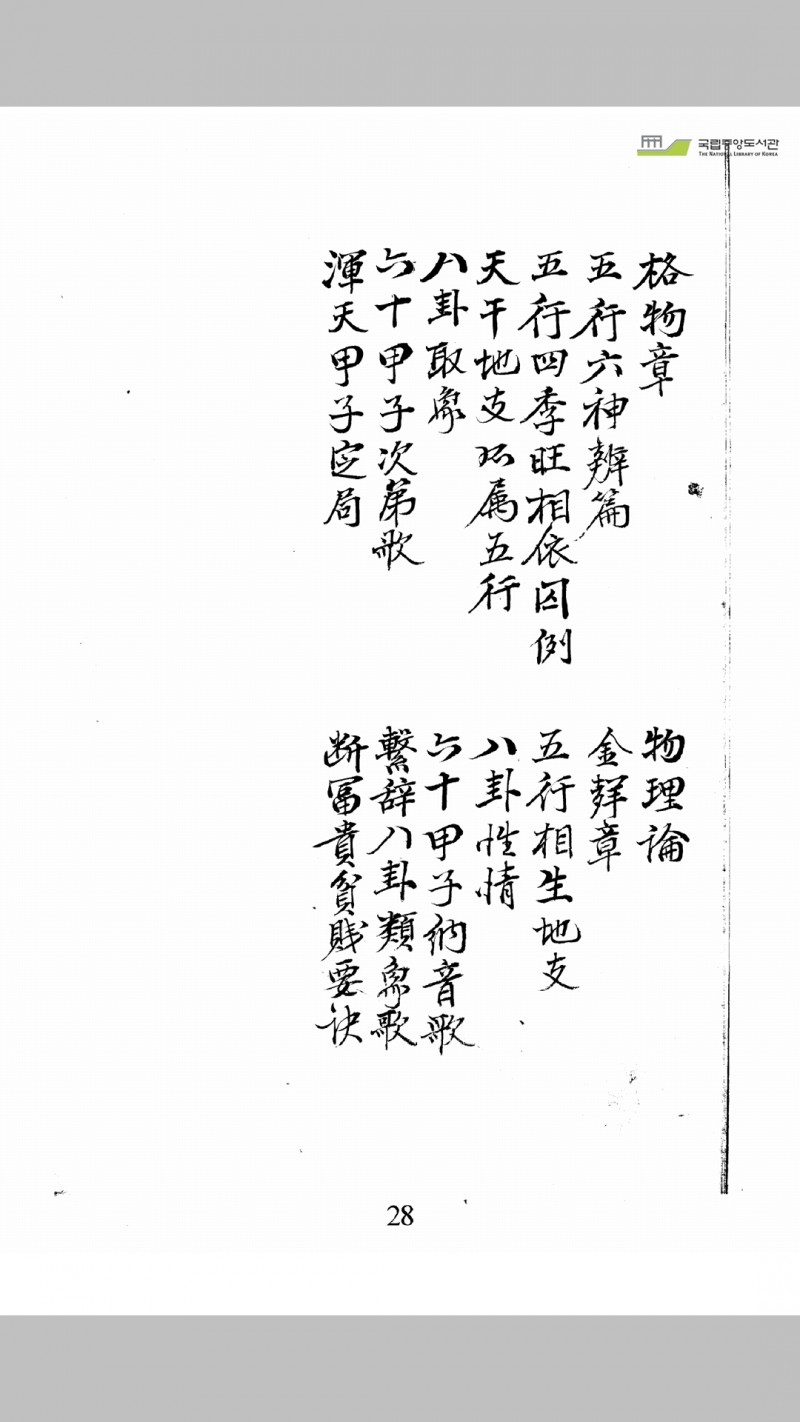 국립중앙도서관
THE NATIONAL LIBRARY OF KOREA
格物章
物理論
五行六神辨篇
金鏁章
五行四季旺相依囚例
五行相生地支
天干地支所属五行
八卦性情
八卦取象
六十甲子納音歌
六十甲子次第歌
繫辞八卦類象歌
渾天甲子定局
断冨貴貧賎要诀
28